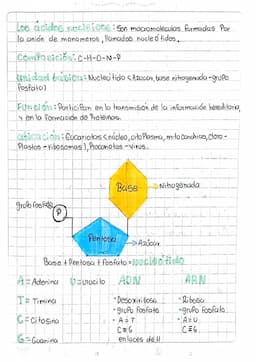 Los ácidos nucleicos: Son macromoleculas formadas Por
la unión de monomeros, llamados nucleótidos.
Composición: C-H-O-N-P
Unidad básica: Nucleotido <Azucar, base nitrogenada-grupo
fosfato>
Función: Participan en la transmisión de la información hereditaria,
y en la Formación de Proteinas.
ubicación: Eucariotas <núcleo, citoplasma, mitocondrias, cloro-
plastos-ribosomas>, Procariotas-virus.
Base
Nitrogenada
grupo fosfato
P
Pentosa
Azúcar
Base + Pentosa + Fosfato = nucleótido
A = Adenina U = uracilo ADN ARN
T = Timina • Desoxirribosa • Ribosa
• grupo fosfato • grupo fosfato
C = Citosina • A = T • A = U
C ≡ G C ≡ G
G = Guanina enlaces de H